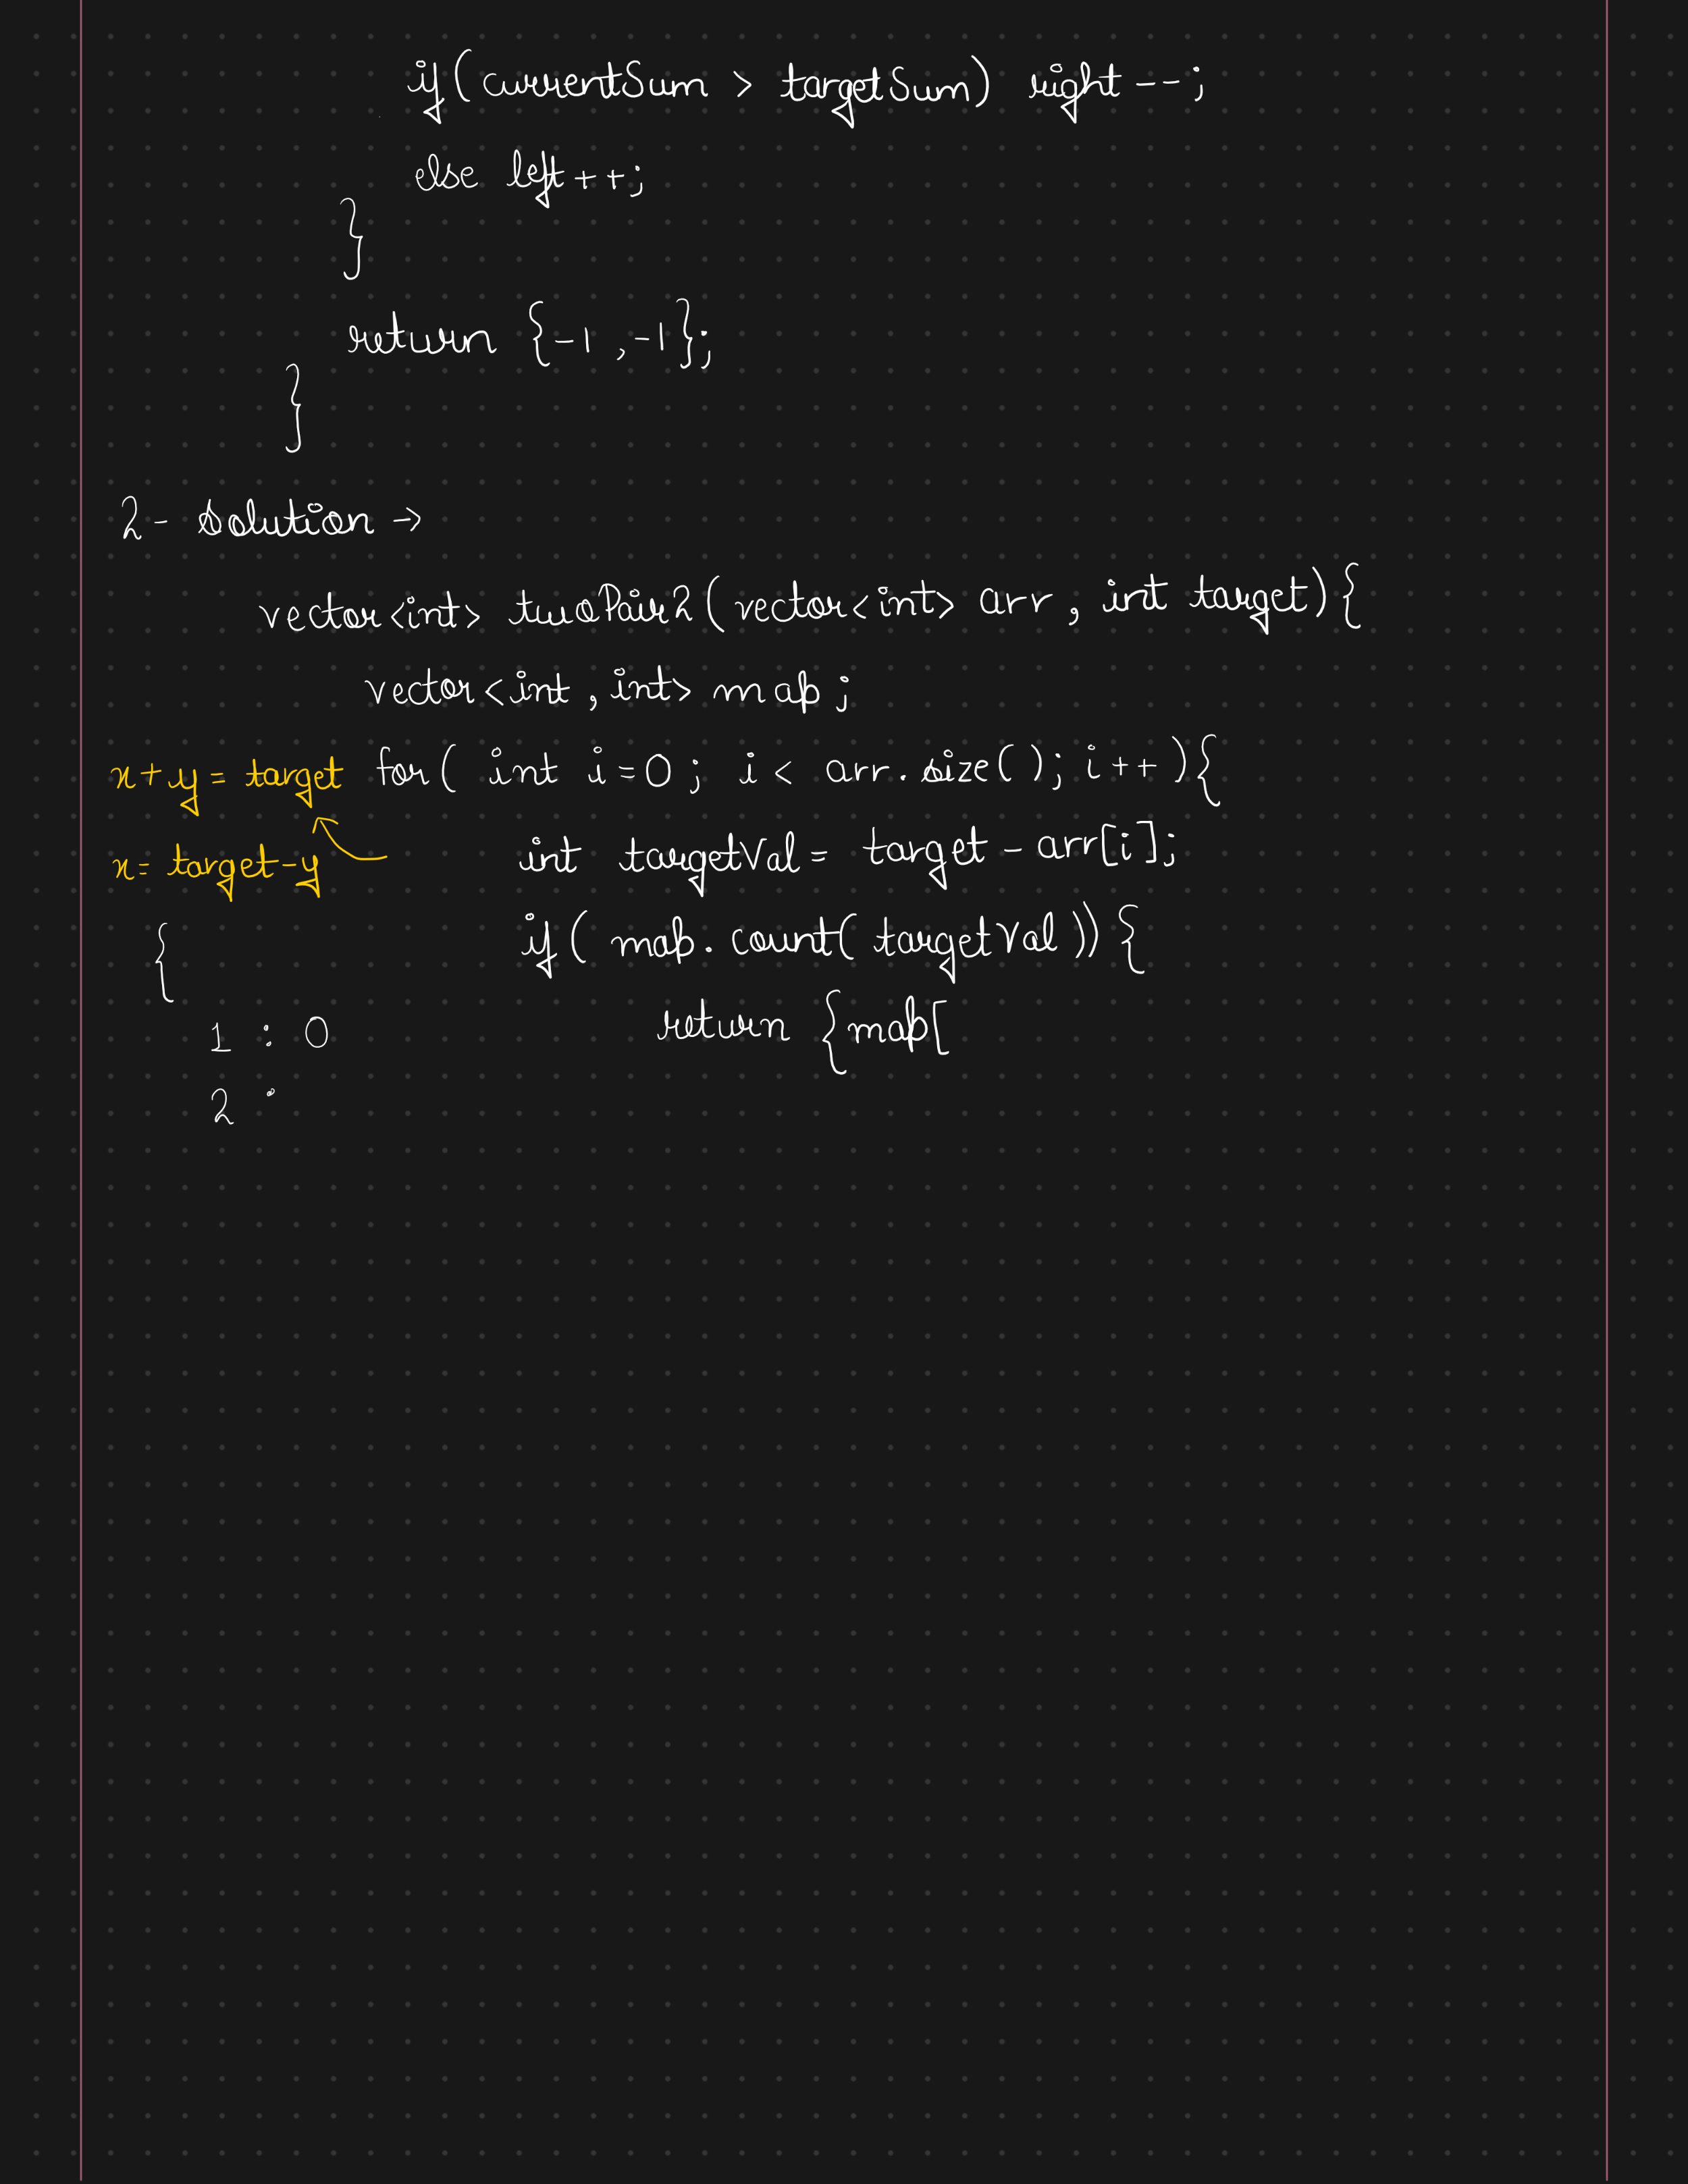 if(currentSum > targetSum) right--;
else left++;
}
return {-1,-1};
}
2- Solution →
vector<int> twoPair2(vector<int> arr, int target){
vector<int,int> map;
x+y = target
for( int i=0; i < arr.size(); i++){
x= target-y
int targetVal = target - arr[i];
{
if( map.count( targetVal )){
1 : 0
return {map[
2 :